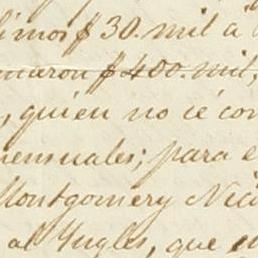 limos $ 30. mil a
maron $ 400. mil,
, quien no ce con
mensuales; para e
Montgomery Nico
al Yngles, que en